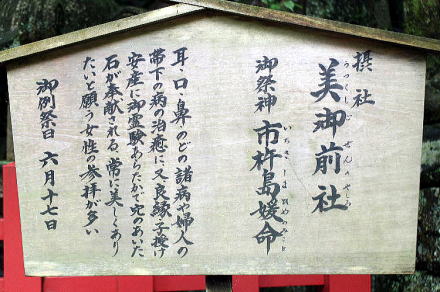 摂社
美御前社
うつくしごぜんのやしろ
御祭神 市杵島媛命
いちきしまひめのみこと
耳、口、鼻、のどの諸病や婦人の
帯下の病の治癒に、又良縁子授け
安産に御霊験あらたかで穴のあいた
石が奉献される、常に美しくあり
たいと願う女性の参拝が多い
御例祭日 六月十七日